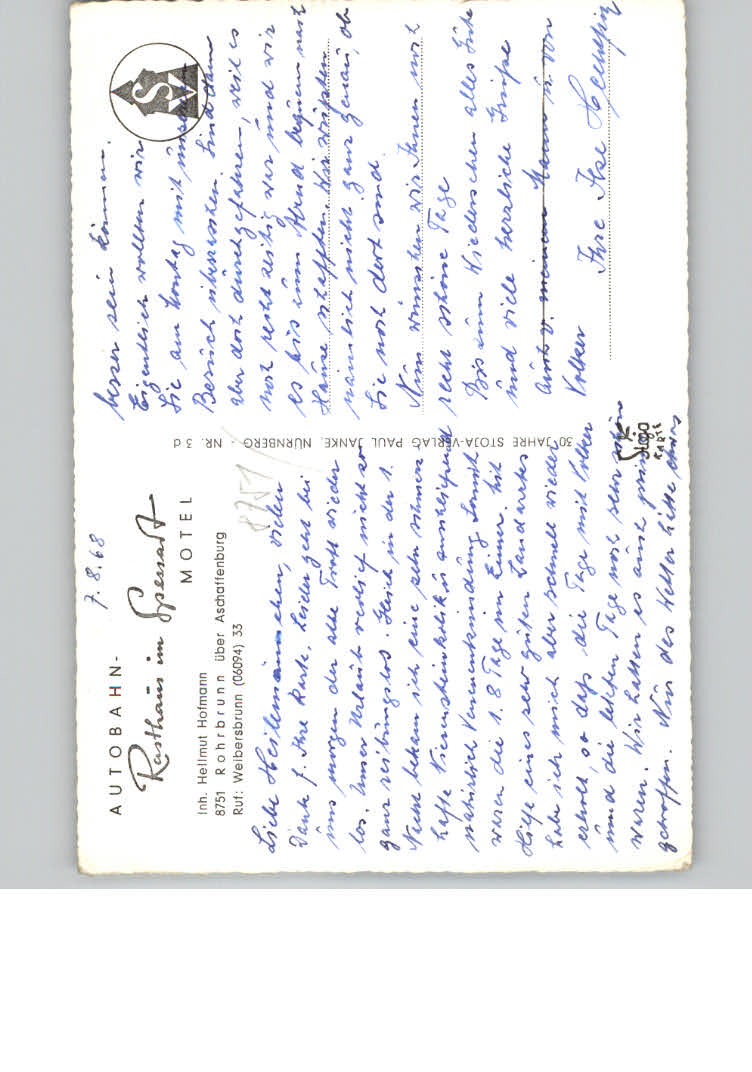 7.8.68
AUTOBAHN-
Rasthaus im Spessart
MOTEL
Inh. Hellmut Hofmann
8751 Rohrbrunn über Aschaffenburg
Ruf: Weibersbrunn (06094) 33
8751
Liebe vielen
Dank f. Ihre Karte. Leider geht bei
uns morgen der alte Trott wieder
los. Unser Urlaub verlief nicht so
ganz reibungslos. Gleich in der 1.
Woche bekam ich eine sehr schmerz
hafte Nierensteinkolik u. anschließend
natürlich Venenentzündung. Somit
waren die 1. 8 Tage im Eimer. Mit
Hilfe eines sehr guten Landarztes
habe ich mich aber schnell wieder
erholt, so daß die Tage mit Volker
und die letzten Tage noch sehr schön
waren. Wir hatten es auch prima
getroffen. Nur das Wetter hätte etwas
30 JAHRE STOJA-VERLAG PAUL JANKE NÜRNBERG - NR. 3 d
Stoja
KARTE
besser sein können.
Eigentlich wollten wir
Sie am Montag mit unserem
Besuch überraschen. Sind dann
aber doch durchgefahren, weil es
noch recht zeitig war und wir
es bis zum Abend bequem nach
Hause schafften. Wir wußten
nämlich nicht ganz genau, ob
Sie noch dort sind.
Nun wünschen wir Ihnen noch
recht schöne Tage
Bis zum Wiedersehen alles Gute
und viele herzliche Grüße
auch v. meinem Mann u. von
Volker
Ihre Ilse